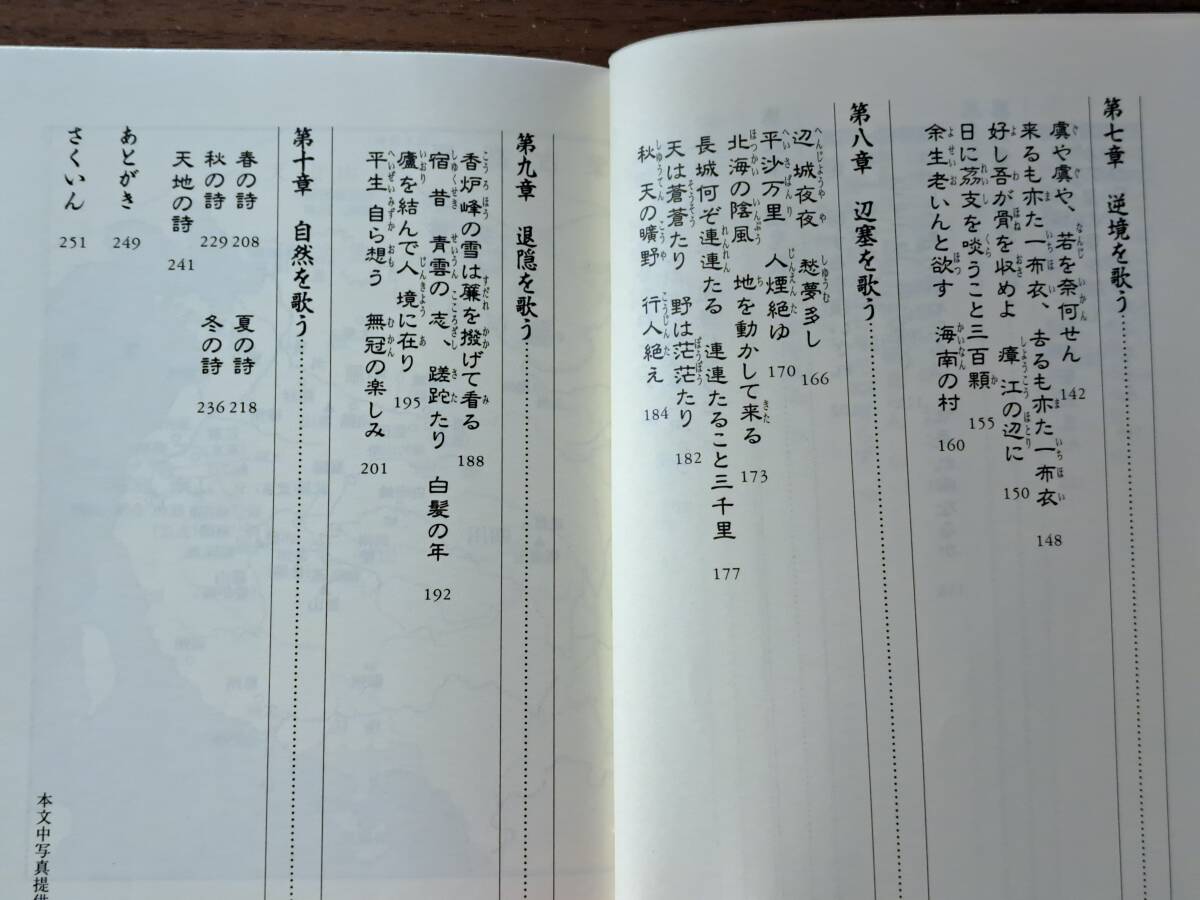 第七章 逆境を歌う
虞や虞や、若を奈何せん 142
来るも亦た一布衣、去るも亦た一布衣 148
好し吾が骨を収めよ 瘴江の辺に 150
日に茘支を啖うこと三百顆 155
余生老いんと欲す 海南の村 160
第八章 辺塞を歌う
辺城夜夜 愁夢多し 166
平沙万里 人煙絶ゆ 170
北海の陰風 地を動かして来る 173
長城何ぞ連連たる 連連たること三千里 177
天は蒼蒼たり 野は茫茫たり 182
秋天の曠野 行人絶え 184
第九章 退隠を歌う
香炉峰の雪は簾を撥げて看る 188
宿昔 青雲の志、蹉跎たり 白髪の年 192
廬を結んで人境に在り 195
平生自ら想う 無冠の楽しみ 201
第十章 自然を歌う
春の詩 208 夏の詩 218
秋の詩 229 冬の詩 236
天地の詩 241
あとがき 249
さくいん 251
本文中写真提供